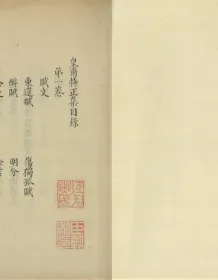 皇甫持正集目錄
第一卷
賦文
東還賦
傷獨孤賦
醉賦
明分